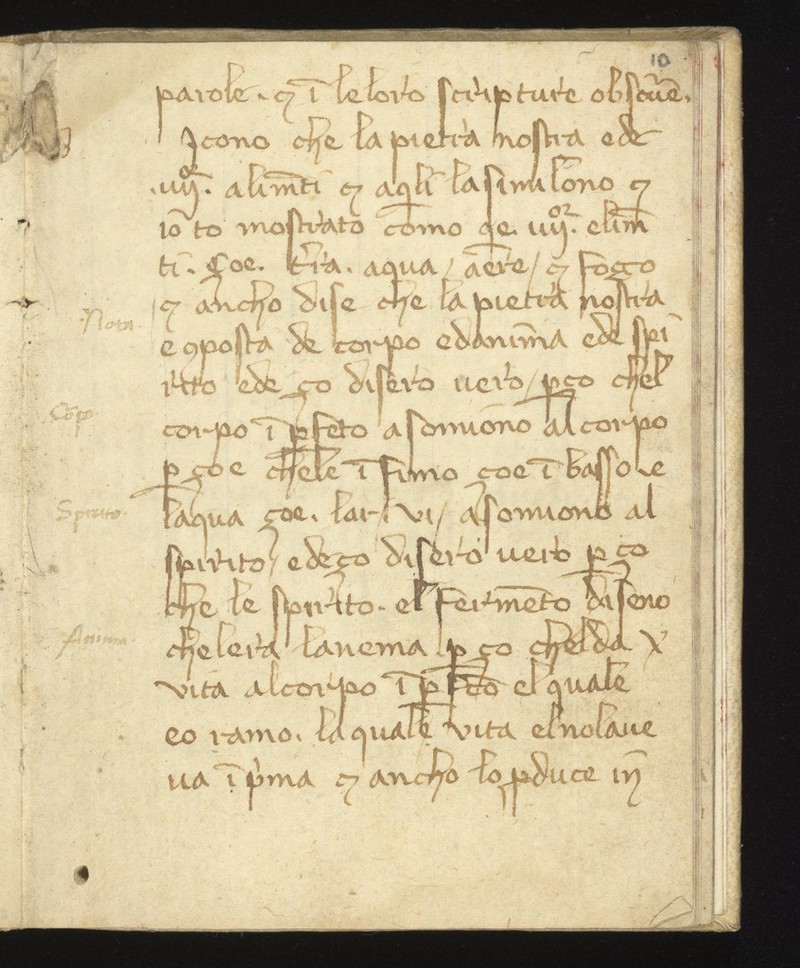 10
parole. ⁊ ī le loro scripture obscure.
Icono che la pietra nostra ede
.iiijor. alimēti ⁊ aq̄li la similōno ⁊
io to mostrato como q̄e. iiijor. elim̄
ti. Çoe. t̄ra. aqua / aere / ⁊ foco
⁊ ancho dise che la pietra nostra
Nota.
e ꝯposta de corpo ed anima ede spi
rito ede ço disero uero / ꝑ ço chel
Cōpo
corpo ī ꝑfeto asomiono al corpo
ꝑ çoe chele ī fimo çoe ī basso e
Spirito.
laqua çoe. lar / vi / asomiono al
spirito / ede ço disero uero ꝑ ço
che le spirito. el fermēto disero
Anima.
chelera lanema ꝑ ço chel da
vita al corpo ī ꝑfeto el quale
eo ramo. la quale vita el nolaue
ua ī p̄ma ⁊ ancho lo ꝓduce in